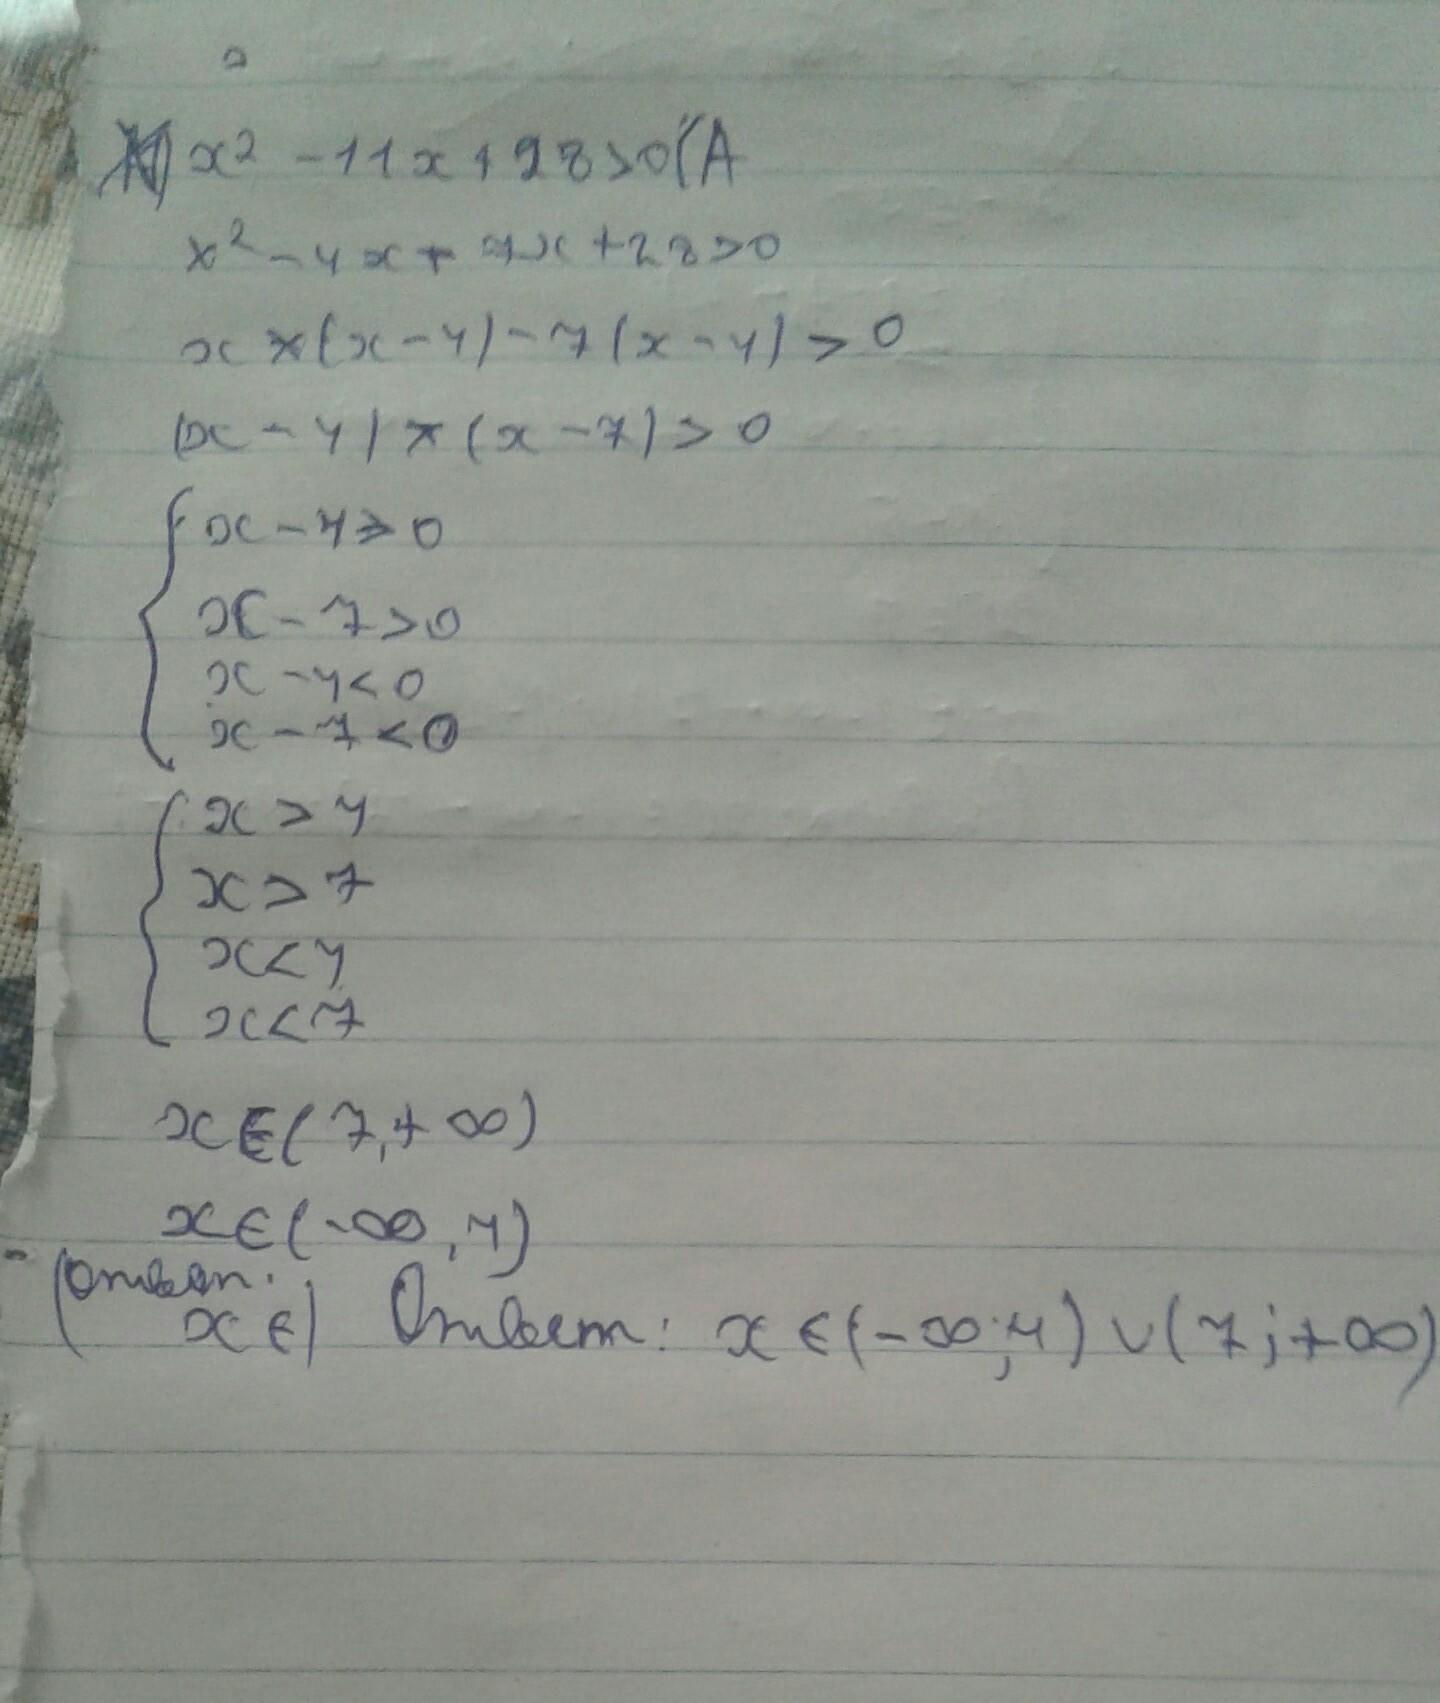 x² - 11x + 28 > 0 (A
x² - 4x + 7x + 28 > 0
x * (x - 4) - 7 (x - 4) > 0
(x - 4) * (x - 7) > 0
x - 4 > 0
x - 7 > 0
x - 4 < 0
x - 7 < 0
x > 4
x > 7
x < 4
x < 7
x ∈ (7, + ∞)
x ∈ (-∞, 4)
(Ответ:
x ∈) Ответ: x ∈ (-∞; 4) ∪ (7; +∞)